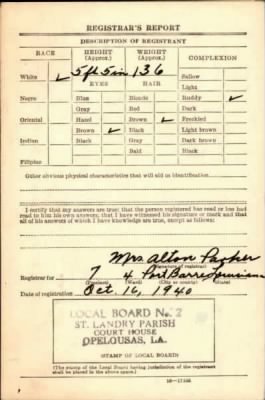 REGISTRAR'S REPORT
DESCRIPTION OF REGISTRANT
RACE HEIGHT (Approx.) WEIGHT (Approx.) COMPLEXION
White ✓ 5 ft 5 in 136 Sallow
EYES HAIR Light
Negro Blue Blonde Ruddy ✓
Gray Red Dark
Oriental Hazel Brown ✓ Freckled
Brown ✓ Black Light brown
Indian Black Gray Dark brown
Bald Black
Filipino
Other obvious physical characteristics that will aid in identification
I certify that my answers are true; that the person registered has read or has had
read to him his own answers; that I have witnessed his signature or mark and that
all of his answers of which I have knowledge are true, except as follows:
Mrs Alton Parker
(Signature of registrar)
Registrar for 7 4 Port Barre Louisiana
(Precinct) (Ward) (City or county) (State)
Date of registration Oct 16, 1940
LOCAL BOARD No. 2
ST. LANDRY PARISH
COURT HOUSE
OPELOUSAS, LA.
(STAMP OF LOCAL BOARD)
(The stamp of the Local Board having jurisdiction of the registrant
shall be placed in the above space.)